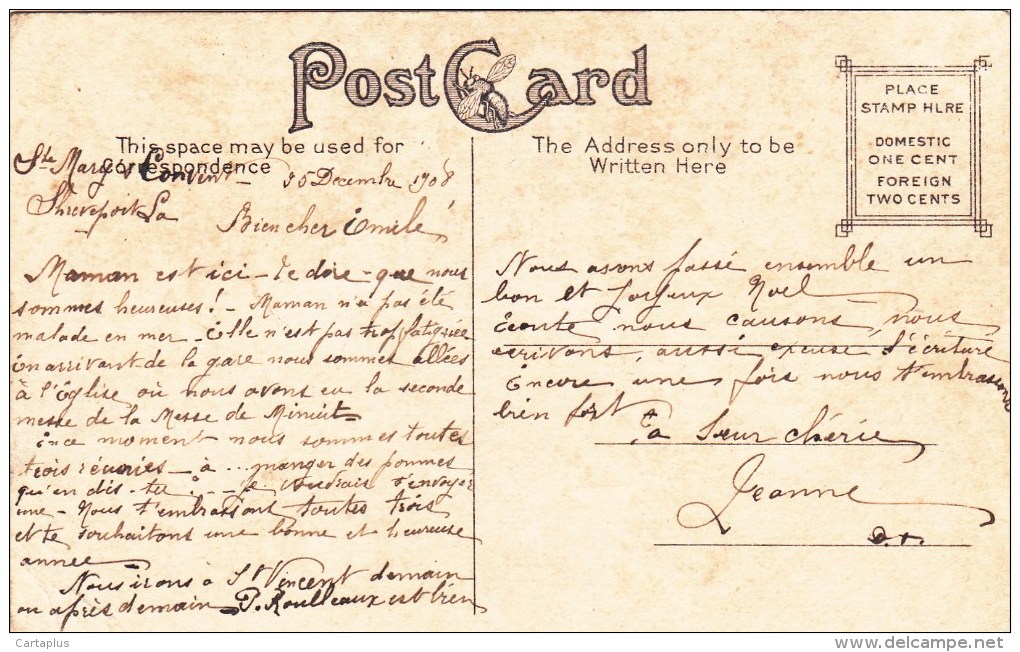 Post Card
This space may be used for
Correspondence
The Address only to be
Written Here
PLACE
STAMP HERE
DOMESTIC
ONE CENT
FOREIGN
TWO CENTS
Ste Mary's Convent - 25 Decembre 1908
Shreveport La
Bien cher Emile,
Maman est ici - te dire - que nous
sommes heureuses! - Maman n'a pas été
malade en mer - Elle n'est pas trop fatiguée
En arrivant de la gare nous sommes allées
à l'Église où nous avons eu la seconde
messe de la Messe de Minuit -
En ce moment nous sommes toutes
trois réunies - à ... manger des pommes
qu'en dis-tu? - Je voudrais t'envoyer
une - Nous t'embrassons toutes trois
et te souhaitons une bonne et heureuse
année -
Nous irons à St Vincent demain
ou après demain P. Roulleaux est bien
Nous avons passé ensemble un
bon et Joyeux Noel
Écoute nous causons, nous
écrivons, aussi excuse l'écriture
Encore une fois nous t'embrassons
bien fort
Ta Sœur chérie
Jeanne
Cartaplus
www.delcampe.net